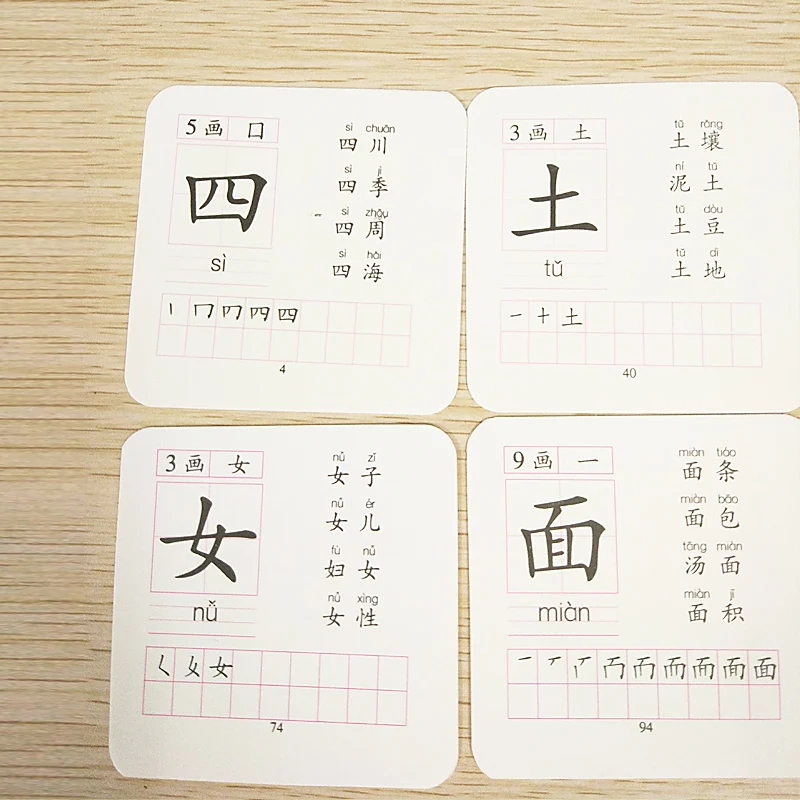 5画 口
四
sì
sì chuān
四川
sì jì
四季
sì zhōu
四周
sì hǎi
四海
丨 冂 四
4
3画 土
土
tǔ
tǔ rǎng
土壤
ní tǔ
泥土
tǔ dòu
土豆
tǔ dì
土地
一 十 土
40
3画 女
女
nǚ
nǚ zǐ
女子
nǚ ér
女儿
fù nǚ
妇女
nǚ xìng
女性
女
74
9画 一
面
miàn
miàn tiáo
面条
miàn bāo
面包
tāng miàn
汤面
miàn jī
面积
一 面
94